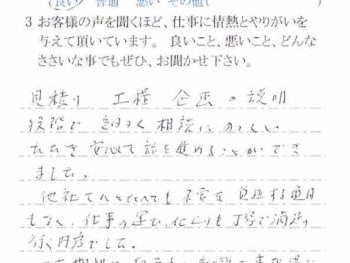 (良い) 普通 悪い その他(
3 お客様の声を聞くほど、仕事に情熱とやりがいを
与えて頂いています。 良いこと、悪いこと、どんな
ささいな事でもぜひ、お聞かせ下さい。
見積り 工程 企画の説明
段階で 細かく 相談にのってい
ただき 安心して話を進めることができ
ました。
他社 不安
もなく、仕事の運び、仕上りも丁寧で満足の
行く内容でした。